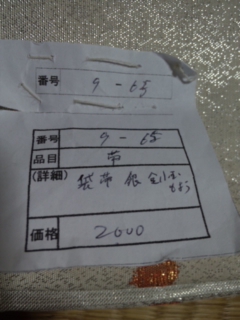 番号 9-65
番号 9-65
品目 帯
(詳細) 袋帯 銀
もよう
価格 2000